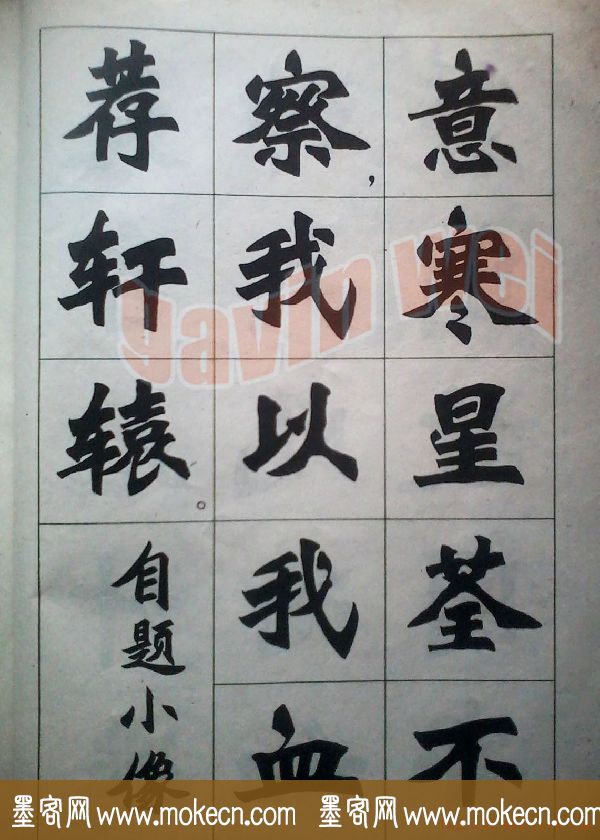 意寒星荃不
察，我以我血
荐轩辕。
自题小像
gavin wei
墨客网 www.mokecn.com 墨客网 www.mokecn.com